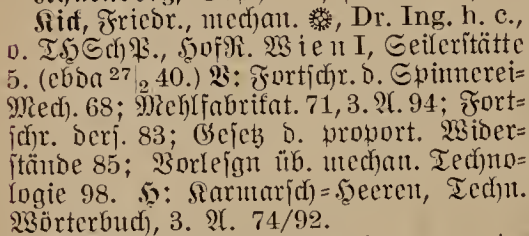 Kick, Friedr., mechan. ⚙, Dr. Ing. h. c.,
o. THSchP., HofR. Wien I, Seilerstätte
5. (ebda 27|2 40.) V: Fortschr. d. Spinnerei=
Mech. 68; Mehlfabrikat. 71, 3. A. 94; Fort=
schr. ders. 83; Gesetz d. proport. Wider=
stände 85; Vorlesgn üb. mechan. Techno=
logie 98. H: Karmarsch=Heeren, Techn.
Wörterbuch, 3. A. 74/92.